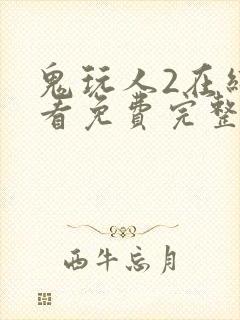 鬼玩人2在
看免费完整
西牛忘月